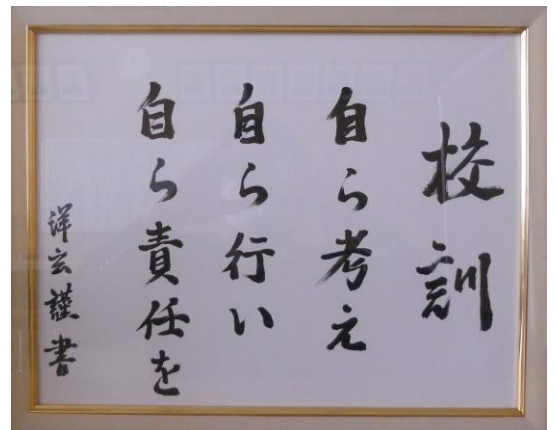 校訓
自ら考え
自ら行い
自ら責任を
洋玄謹書